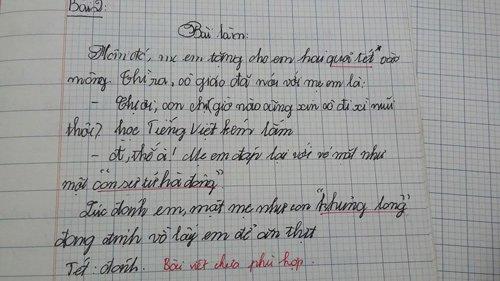 Bài 2:
Bài làm:
Môn đó, mẹ em tặng cho em hai quả tét vào
mông. Thì ra, cô giáo đã nói với mẹ em là:
- Chị ơi, con chị giờ nào cũng xin cô đi xì mũi
thôi? học Tiếng Việt kém lắm
- Ừ, thế à! Mẹ em đáp lại với vẻ mặt như
một "con sư tử hà đông"
Lúc đánh em, mặt mẹ như con "khủng long"
đang định vồ lấy em để ăn thịt
Tét: đánh. Bài viết chưa phù hợp.